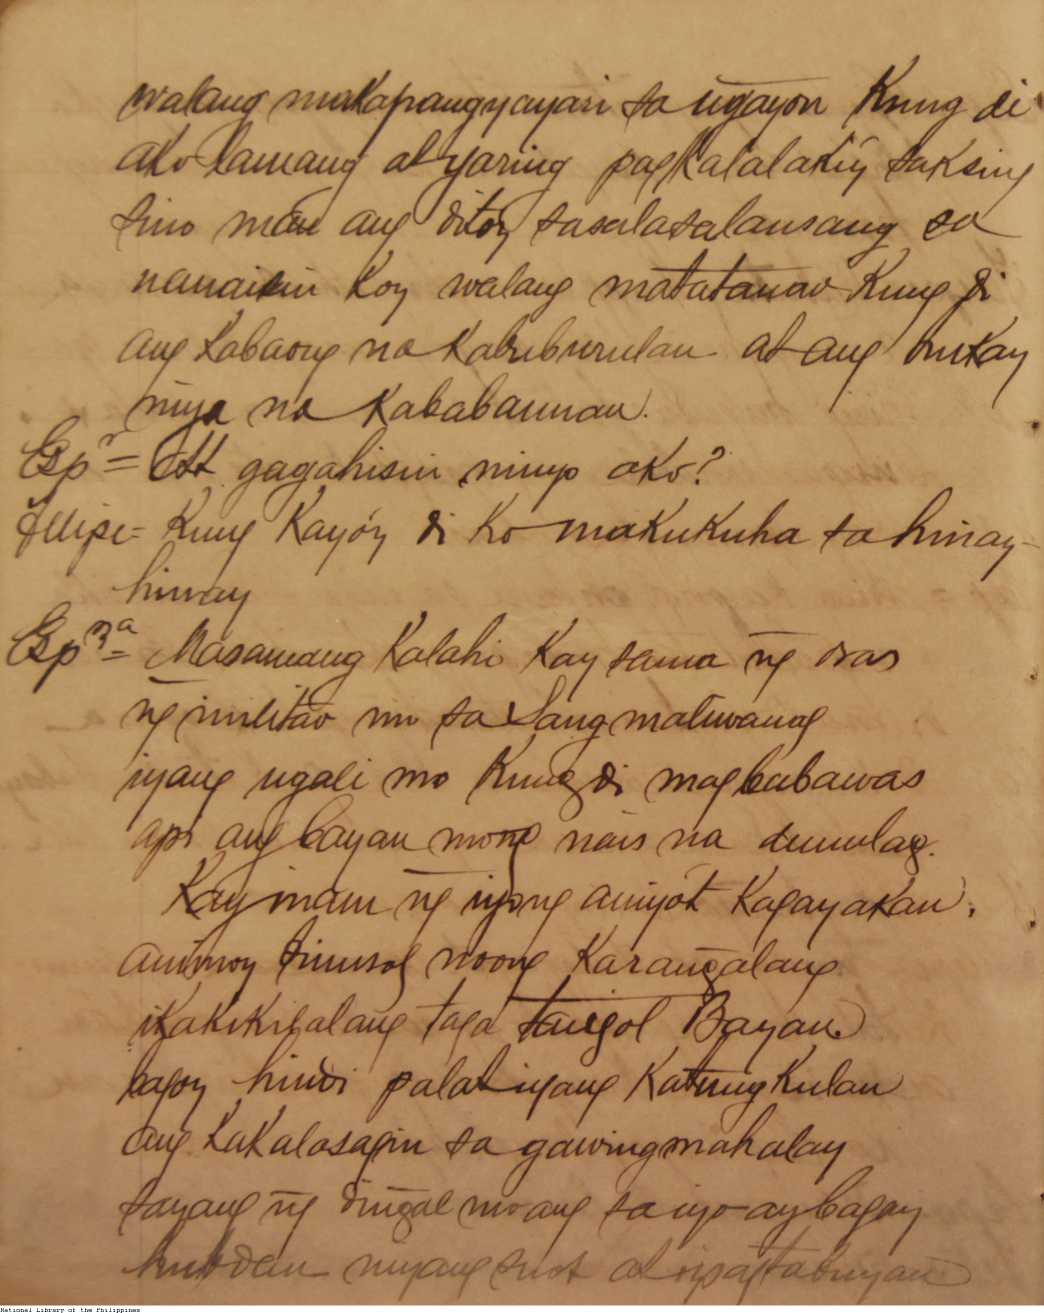 walang makapangyayari sa ngayon Kung di
ako lamang at yaring pagkalalakiy saksing
sino man ang ditoy sasalasalansang sa
nanaisin Koy walang matatanaw Kung di
ang kabaong na Kabuburulan at ang hukay
niya na Kababaunan.
Espr = At gagahisin ninyo ako?
Felipe = Kung Kayóy di Ko makukuha sa hinay-
hinay
Espza = Masamang Kalahi Kay sama ng̃ oras
ng̃ isilitaw mo sa Sangmaliwanag
iyang ugali mo Kung di magbabawas
api ang bayan mong nais na dumulag.
Kay inam ng̃ iyong aniyót Kagayakan,
animoy sinusol noong Karang̃alang
iKakikigalang taga tangol Bayan
bagoy hindi palat iyang Katungkulan
ang KaKalasagin sa gawing mahalay
sayang ng̃ ding̃al mo ang sa iyo ay bagay
hubdan niyang suot at ipagtabuyan
National Library of the Philippines